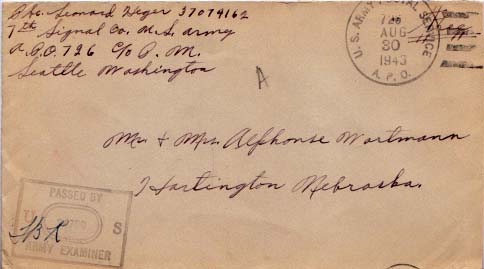 Pfc. Leonard Zeger 37074162
7th Signal Co. U.S. Army
A.P.O. 726 C/o P.M.
Seattle Washington
U.S. ARMY POSTAL SERVICE
726
AUG
30
1943
A.P.O.
A
Mr. + Mrs. Alphonse Wortmann
Hartington Nebraska.
PASSED BY
U S
ARMY EXAMINER